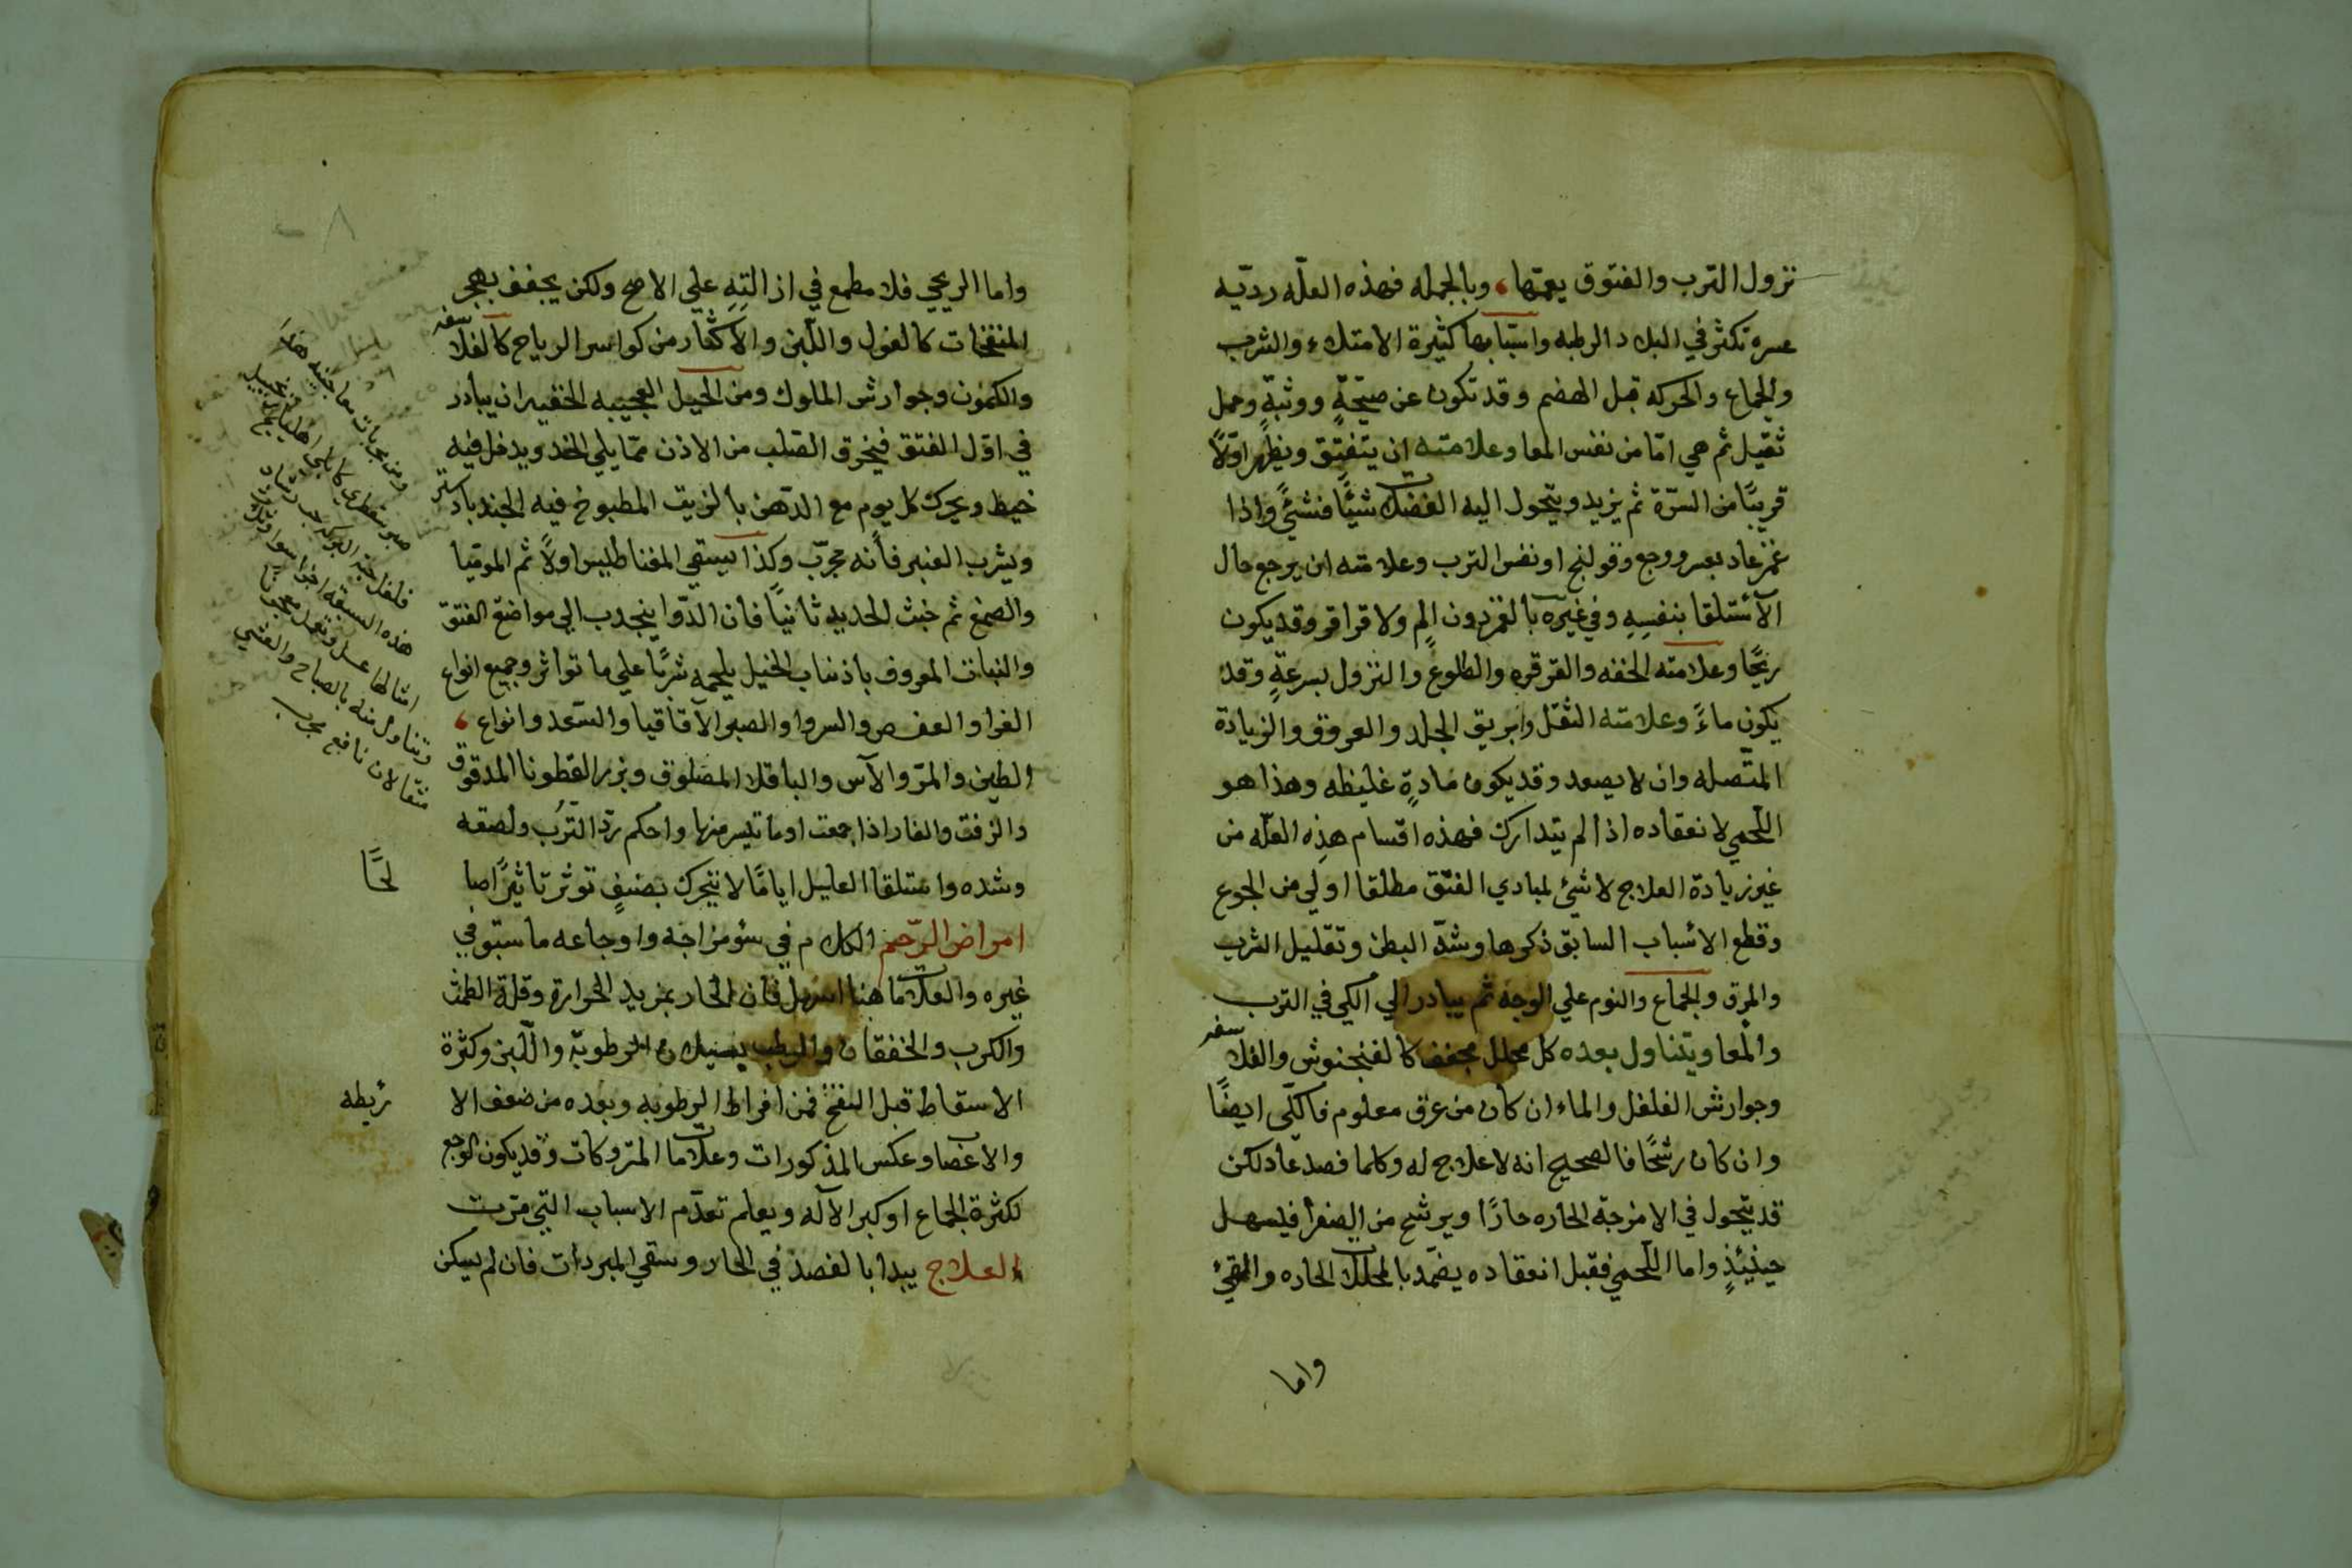 نزول الثرب والفتوق يعمّها، وبالجمله فهذه العلّه رديّه
عسره تكثر في البلاد الرطبه واسبابها كثيرة الامتلاء والشرب
والجماع والحركه قبل الهضم وقد تكون عن صيحةٍ ووثبةٍ وحمل
ثقيل ثم هي امّا من نفس المعا وعلامته ان يتفتق ويظهر اوّلاً
قريبًا من السرّة ثم يزيد ويتحول اليه الفضلات شيئًا فشئً واذا
غمز عاد بعسر ووجع وقولنج او نفس الترب وعلامته ان يرجع حال
الآستلقا بنفسِهِ وفي غيره بالغمز دون الم ولا قراقر وقد يكون
ريحًا وعلامته الخفه والقرقره والطلوع والنزول بسرعةٍ وقد
يكون ماءً وعلامته الثقل وابريق الجلد والعروق والزيادة
المتّصله وان لا يصعد وقد يكون مادةٍ غليظه وهذا هو
اللّحمي لانعقاده اذا لم يتدارك فهذه اقسام هذِه العلّه من
غير زيادة العلاج لا شئ لمبادي الفتق مطلقا اولي من الجوع
وقطع الاسباب السابق ذكرها وشدّ البطن وتقليل الشرب
والمرق والجماع والنوم علي الوجه ثم يبادر الي الكي في الترب
والمعا ويتناول بعده كل محلل مجفف كالفنجنوش والفلاسفه
وجوارش الفلفل والماء ان كان من عرق معلوم فالكّي ايضًا
وان كان رشحًا فالصحيح انه لا علاج له وكلما فصد عاد لكن
قد يتحول في الامزجة الحاره حارًا ويرشح من الصفرا فيسهل
حينئذٍ واما اللّحمي فقبل انعقاده يضمّد بالمحللات الحاره والقئ
واما
واما الريحي فلا مطمع في ازالتِهِ علي الاصح ولكن يجفف بهجر
المنفخات كالفول واللّبن والآكثار من كواسر الرياح كالفلاسفه
والكمّون وجوارش الملوك ومن الحيل العجيبه الخفيه ان يبادر
في اوّل الفتق فيخرق الصّلب من الاذن ممّا يلي الخد ويدخل فيه
خيط ويحرك كل يوم مع الدّهن بالزيت المطبوخ فيه الجندبادستر
ويشرب العنبر فأنه مجرّب وكذا يسقي المغناطيس اولاً ثم الموميا
والصمغ ثم خبث الحديد ثانيًا فان الدّوا ينجدب الي مواضع الفتق
والنبات المعروف باذناب الخيل يلحمه شربًا علي ما تواثر وجميع انواع
الغرا والعفص والسروا والصبر الآقاقيا والسّعد وانواع،
الطين والمرّ والآس والباقلا المصلوق وبزر القطونا المدقوق
والزفت والغار اذا جمعت او ما تيسر منها واحكم ردّ الترُب ولصقه
وشده واستلقا العليل ايامًا لا يتحرك بضنفٍ توثر تاثيرًا صا
لحًا
امراض الرّحم الكلام في سؤ مزاجه واوجاعه ما ستوفي
غيره والعلاماتّ هنا اسهل فان الحار بمزيد الحرارة وقلة الطمث
والكرب والخفقان والرطب بسيلان الرطوبة واللّبن وكثرة
الاسقاط قبل النفخ فمن افراط الرطوبه وبعده من ضعف الا
ربطه
والاعصاب وعكس المذكورات وعلامات المتروكات وقد يكون الوجع
لكثرة الجماع او كبر الآله ويعلم تقدّم الاسباب التي مرّت
العلاج يبدا بالفصد في الحار وسقي المبردات فان لم يسكن
هذه السبعة اجزا سوا وتؤخذ
امثالها عسل وتعمل معجونا
وتناول منه بالصباح والعشي
مثقالان نافع مجرب